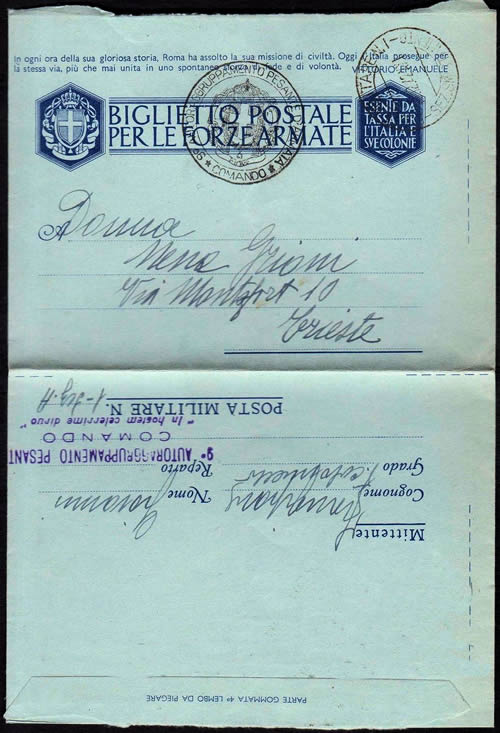 In ogni ora della sua gloriosa storia, Roma ha assolto la sua missione di civiltà. Oggi l'Italia prosegue per
la stessa via, più che mai unita in uno spontaneo sforzo di fede e di volontà. VITTORIO EMANUELE
BIGLIETTO POSTALE
PER LE FORZE ARMATE
ESENTE DA
TASSA PER
L'ITALIA E
SVE COLONIE
COMANDO
A Donna
Nena Grioni
Via Montfort 10
Trieste
Mittente
Cognome Nome Giovanni
Grado Reparto
9° AUTORAGGRUPPAMENTO PESANT
COMANDO
"In hostem celerrime diruo"
POSTA MILITARE N.
PARTE GOMMATA 4° LEMBO DA PIEGARE